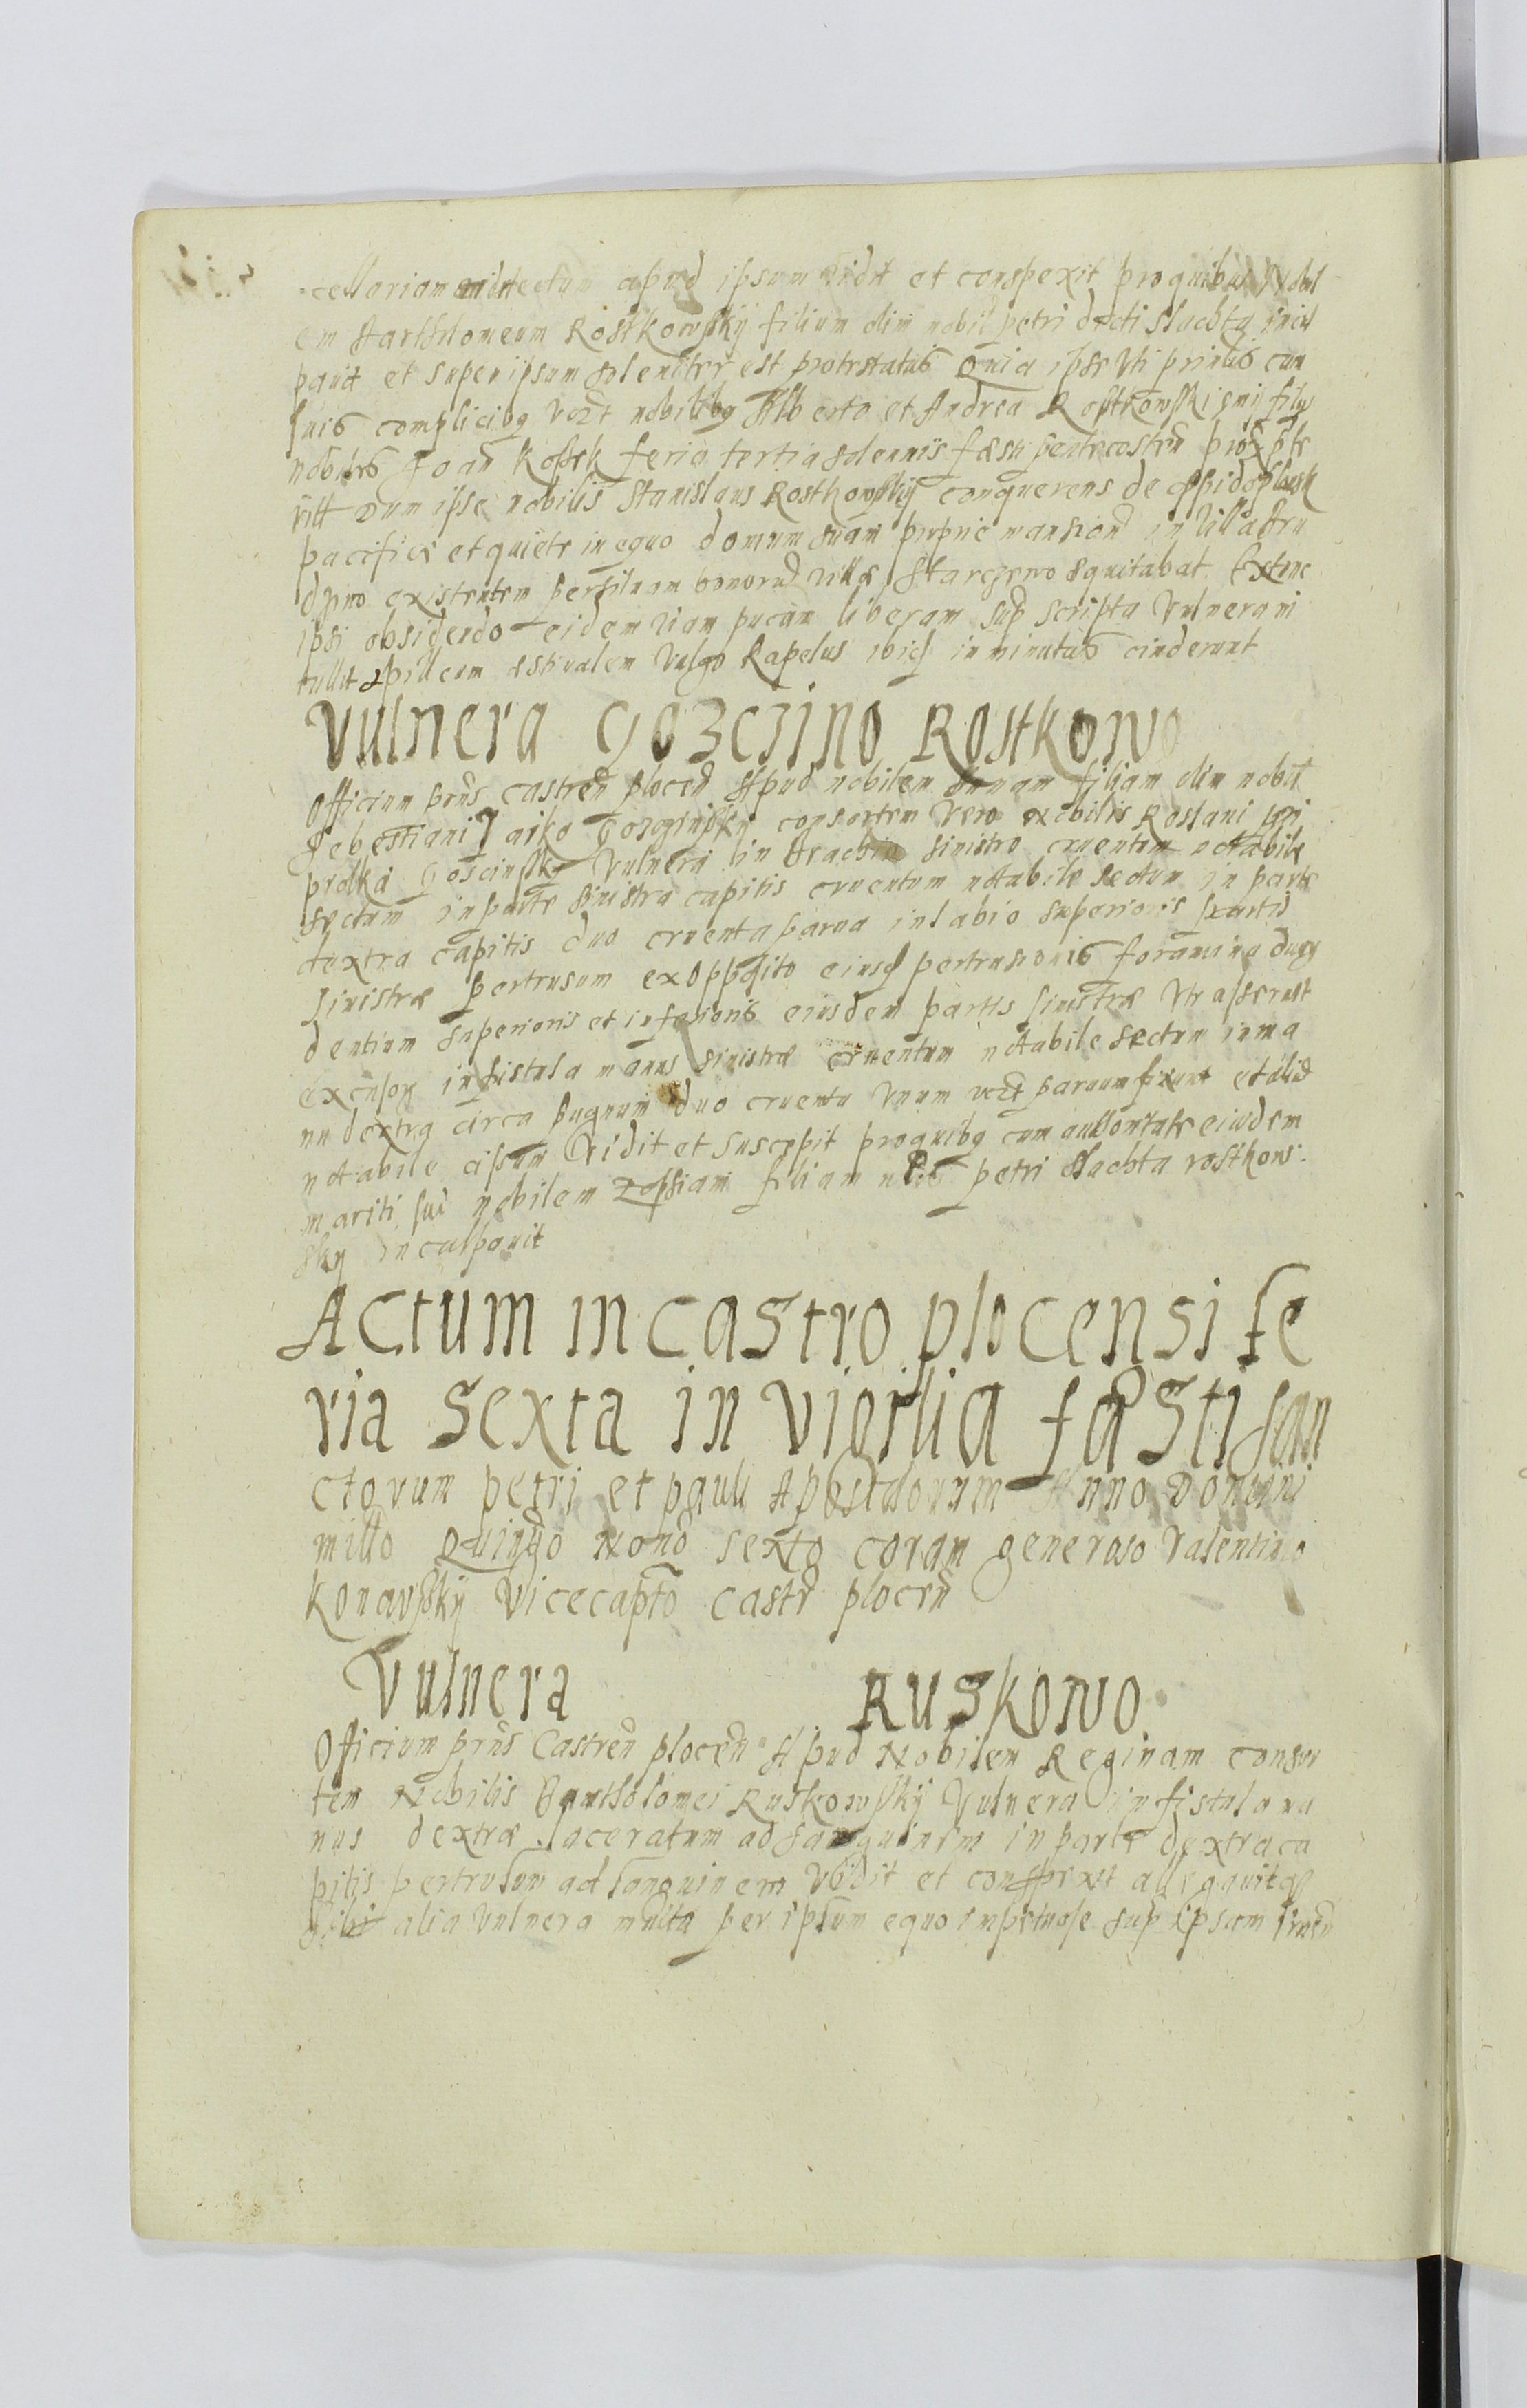 apud ipsum vidit et conspexit pro quibus Nobil
em Bartholomeum Rostkowskij filium olim nobil petri dicti Slachta incul
pavit et super ipsum solenniter est protestatus Quia ipse uti principalis cum
suis complicibus videlicet nobilibus Alberto et Andrea Rostkowski filijs
nobilis Joan Kossek feria tertia solennis festi pentecosten prox pte
rit Dum ipse nobilis Stanislaus Rostkowskij conquerens de oppido
pacifice et quiete in equo domum suam proprie mansion in villa
existentem per siluam bonorum villae Starczewo equitabat Extunc
ipsi obsidendo eidem viam liberam supscripta vulnera in
tullit et pilleum estivalem vulgo Kapelus ibid in minutas ciderunt
Vulnera Gozczino Rostkowo
Officium prns castren plocen Apud nobilem Annam filiam olim nobil
Sebestiani Jaiko consortem vero nobilis Roslani
vulnera in brachio sinistro cruentum notabile
sectum in parte sinistra capitis cruentum notabile sectum in parte
dextra capitis duo cruenta parua in labio superioris partis
sinistrae pertrusum ex opposito eiusd pertrusionis foramina duo
dentium superioris et inferioris eiusdem partis sinistrae
in fistula manus sinistrae cruentum notabile sectum in ma
nu dextra circa pugnum duo cruenta unum vczt paruum et aliud
notabile cissum Vidit et suscepit pro quibus cum authoritate eiudem
mariti sui nobilem Zophiam filiam petri Slachta rostkow-
sky inculpauit
Actum in castro plocensi fe
ria sexta in vigilia faesti san
ctorum petri et pauli Apostolorum Anno Domini
millo Quingo Nono sexto coram generoso Valentino
Konarskij Vicecapto castr plocen
Vulnera Ruskowo
Officium prns Castren plocen Apud Nobilem Reginam consor
tem Nobilis Bartholomei Ruskowskij Vulnera in fistula ma
nus dextrae laceratum ad sanguinem in parte dextra ca
pitis pertrusum ad sanguinem Vidit et conspexit allegauitq
sibi alia vulnera multa per ipsum equo impetuose sup ipsam